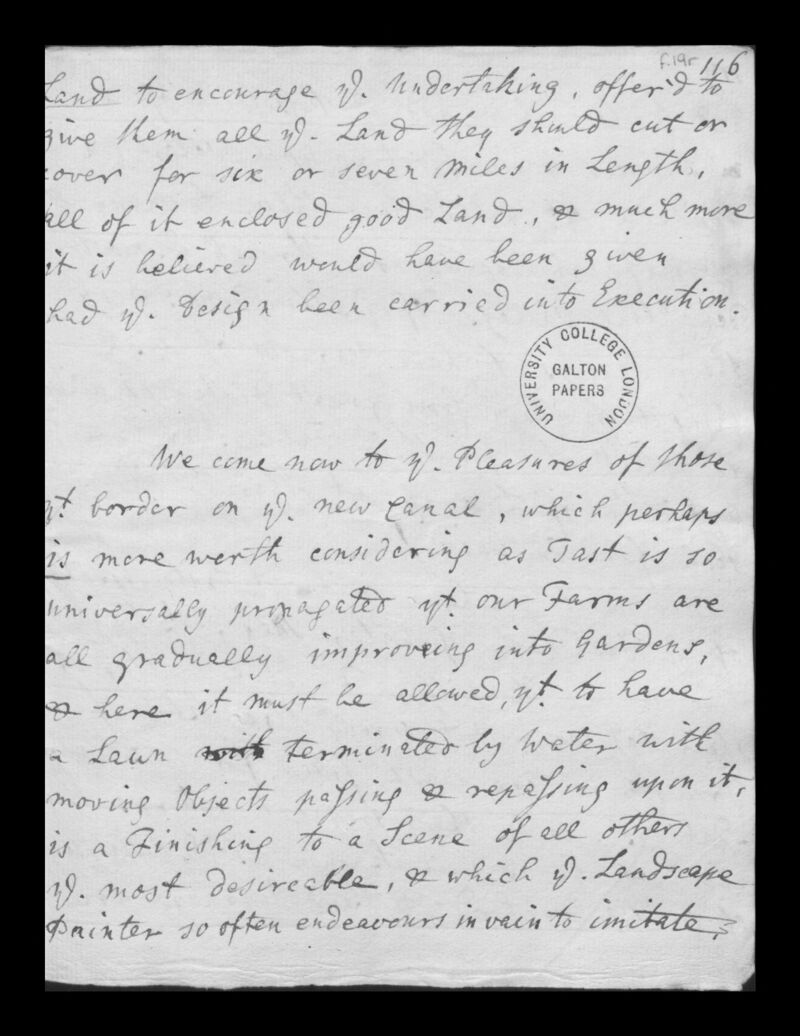 f.19r 116
Land to encourage ye. Undertaking, offer'd to
give them all ye. Land they should cut or
cover for six or seven Miles in Length,
all of it enclosed good Land, & much more
it is believed would have been given
had ye. Design been carried into Execution.
UNIVERSITY COLLEGE LONDON
GALTON
PAPERS
We come now to ye. Pleasures of those
yt. border on ye. new Canal, which perhaps
is more worth considering as Tast is so
universally propagated yt. our Farms are
all gradually improveing into Gardens,
& here it must be allowed, yt. to have
a Lawn with terminated by Water with
moving Objects passing & repassing upon it,
is a Finishing to a Scene of all others
ye. most desireable, & which ye. Landscape
Painter so often endeavours in vain to imitate;